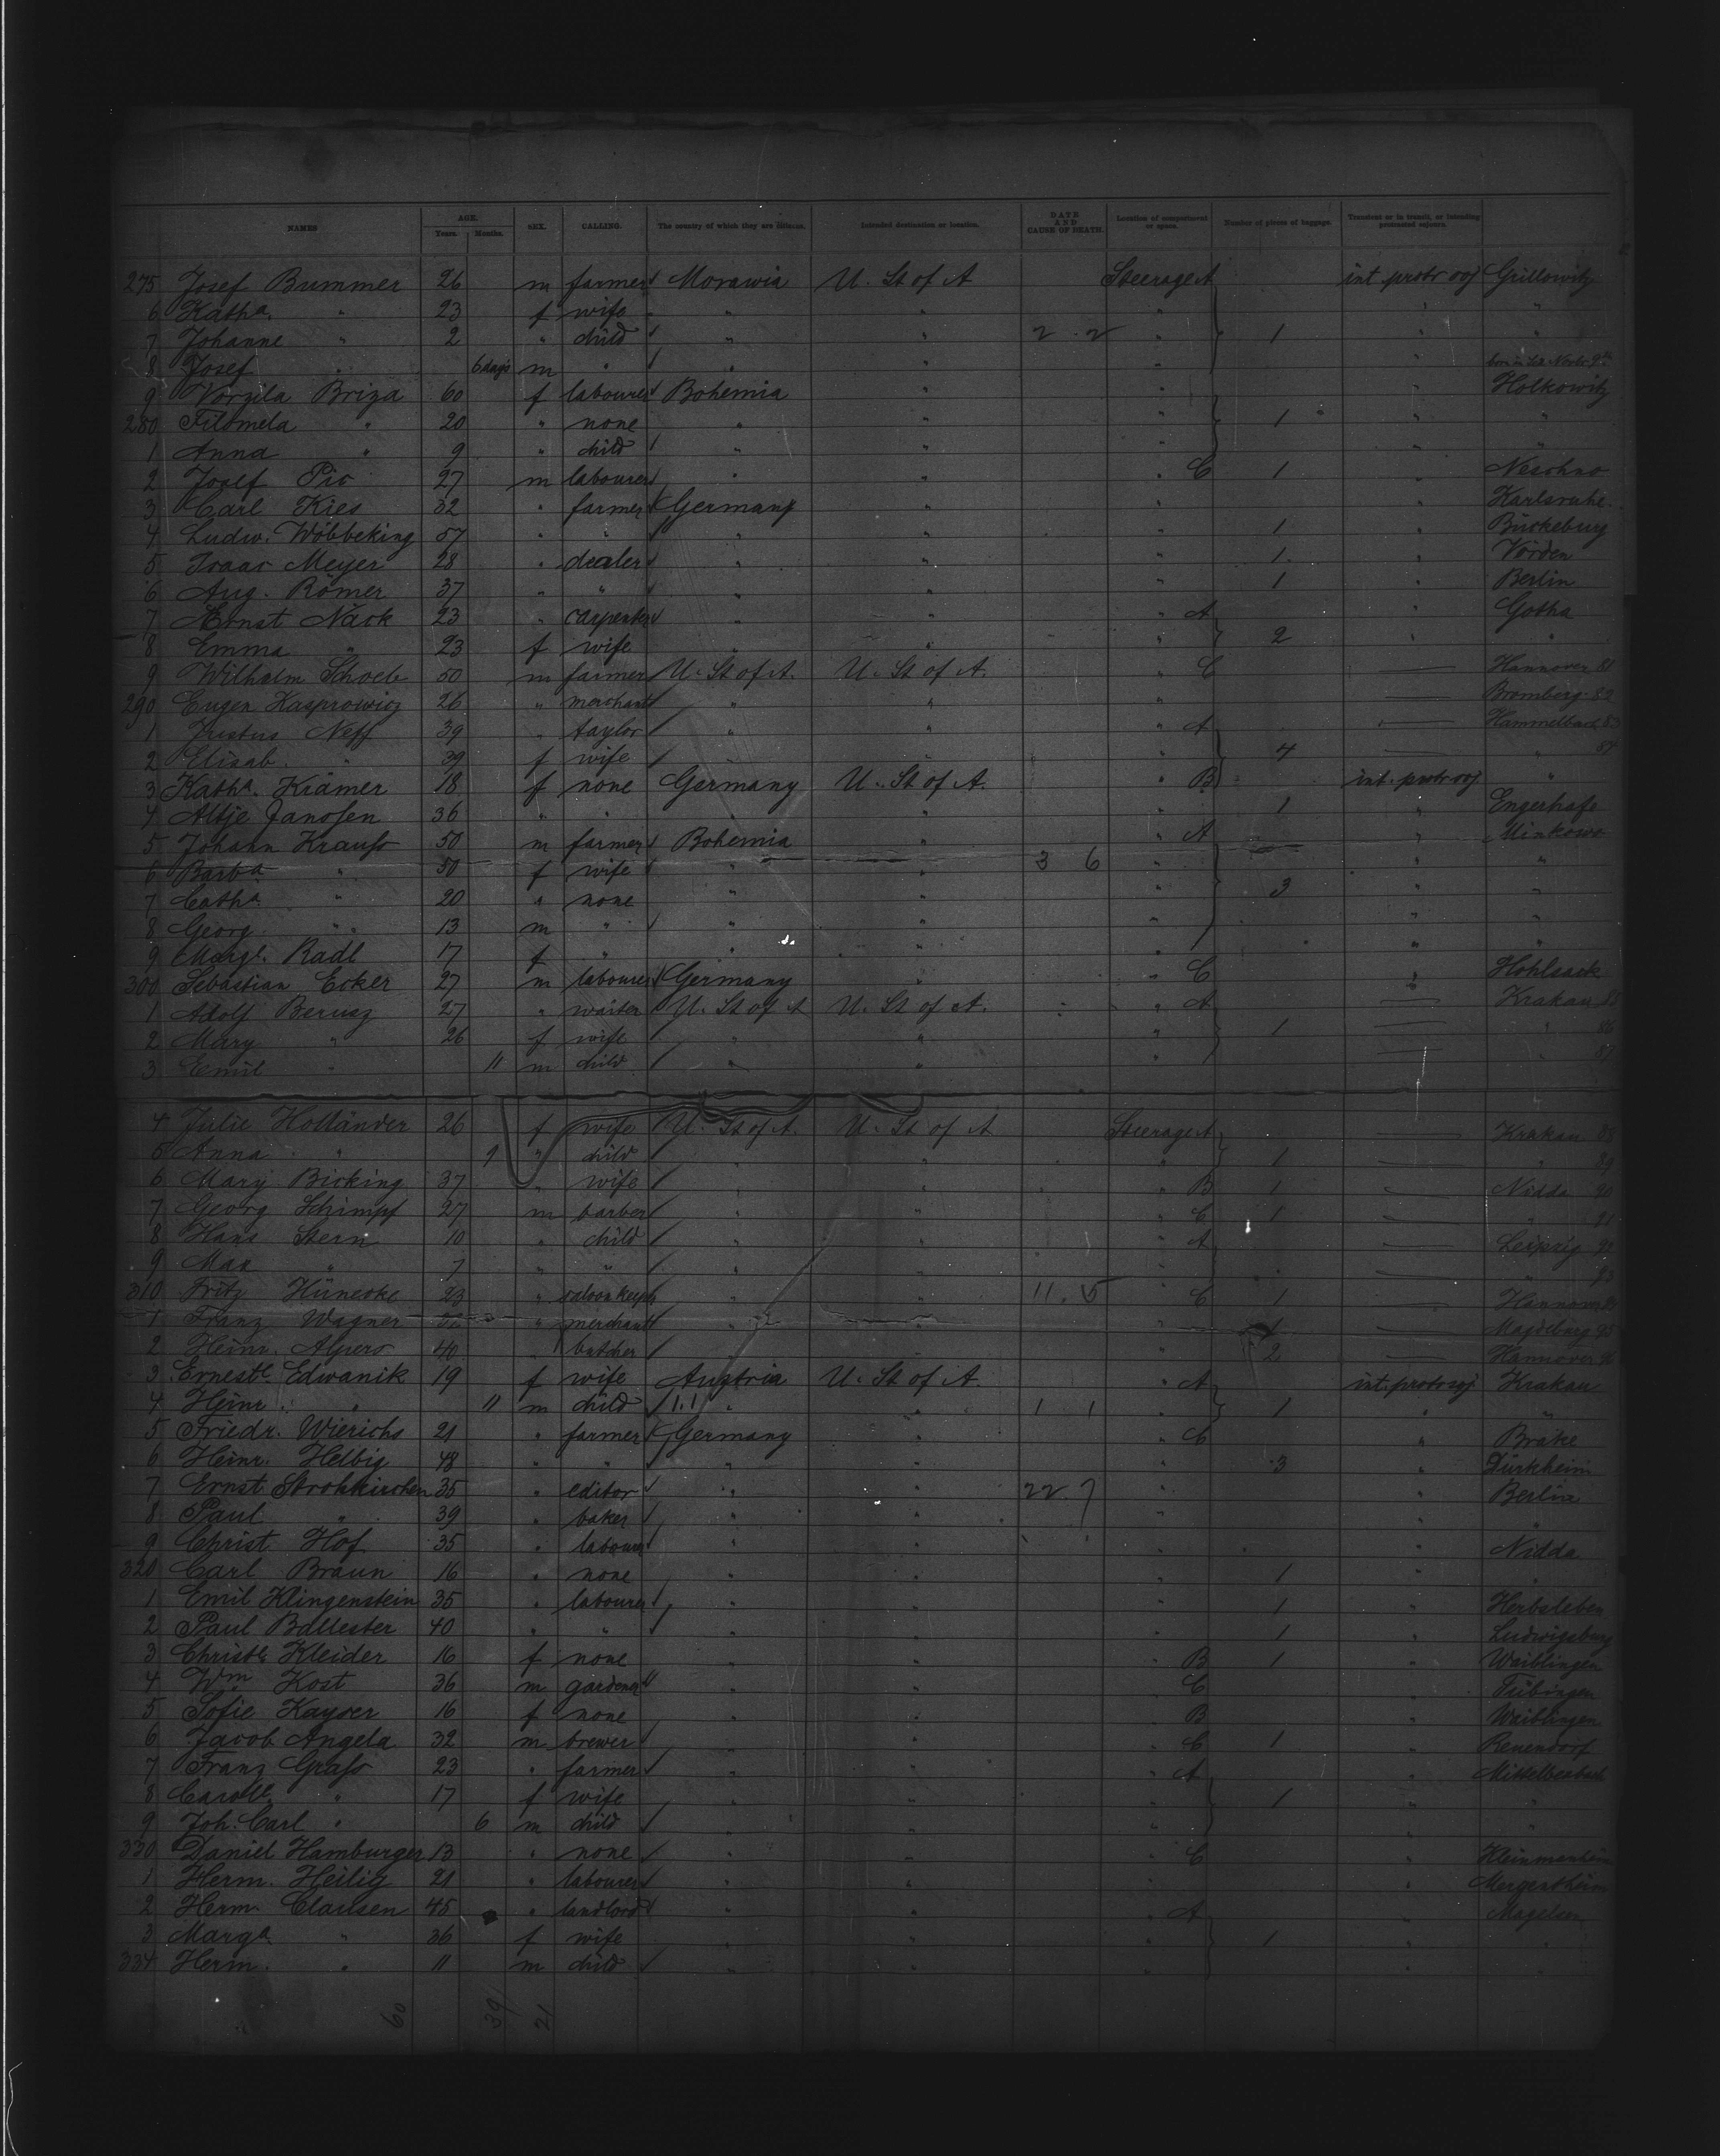 NAMES AGE. Years. Months. SEX. CALLING. The country of which they are citizens. Intended destination or location. DATE AND CAUSE OF DEATH. Location of compartment or space. Number of pieces of baggage. Transient or in transit, or intending protracted sojourn.
275 Josef Bummer 26 m farmer Morawia U. St of A Steerage A int protr soj Grillowitz
6 Katha " 23 f wife " " " " "
7 Johanne " 2 " child " " 2 . 2 " 1 " "
8 Josef " 6 days m " " " " " born in Sea Novbr 9th
9 Vorzila Briza 60 f labourer Bohemia " " " Holkowitz
280 Filomela " 20 " none " " " 1 " "
1 Anna " 9 " child " " " " "
2 Josef Pic 27 m labourer " " " C 1 " Neschno
3 Carl Kies 32 " farmer Germany " " " Karlsruhe
4 Ludw. Wöbbeking 57 " " " " " 1 " Bückeburg
5 Isaac Meyer 28 " dealer " " " 1 " Vörden
6 Aug. Römer 37 " " " " " 1 " Berlin
7 Ernst Nack 23 " carpenter " " " A " Gotha
8 Emma " 23 f wife " " " 2 " "
9 Wilhelm Schoele 50 m farmer U. St of A. U. St of A. " C — Hannover 81
290 Eugen Kasprowicz 26 " merchant " " " — Bromberg 82
1 Justus Neff 39 " taylor " " " A — Hammelbach 83
2 Elisab. " 39 f wife " " " 4 — " 84
3 Katha. Krämer 18 f none Germany U. St of A. " B int. protr soj "
4 Altje Janssen 36 " " " " " 1 " Engerhafe
5 Johann Krauss 50 m farmer Bohemia " " A " Minkowo
6 Barba " 50 f wife " " 3 6 " " "
7 Catha " 20 " none " " " 3 " "
8 Georg " 13 m " " " " " "
9 Margt. Radl 17 f " " " " " "
300 Sebastian Ecker 27 m labourer Germany " " C "
1 Adolf Berusz 27 " waiter U. St of A U. St of A. " A — Krakau 85
2 Mary " 26 f wife " " " 1 — " 86
3 Emil " 11 m child " " " — " 87
4 Julie Holländer 26 f wife U. St of A. U. St of A Steerage A — Krakau 88
5 Anna " 9 " child " " " 1 — " 89
6 Mary Bicking 37 " wife " " " B 1 — Nidda 90
7 Georg Schimpf 27 m barber " " " C 1 — " 91
8 Hans Stern 10 " child " " " A — Leipzig 92
9 Max " 7 " " " " " — " 93
310 Fritz Hünecke 23 " saloon keeper " " 11 . 5 " C 1 — Hannover
1 Franz Wagner " merchant " " " 1 — Magdeburg 95
2 Heinr. Alpers 40 " butcher " " " 2 — Hannover 96
3 Ernestе Edwanik 19 f wife Austria U. St of A. " A int. protr soj Krakau
4 Heinr. " 11 m child " " 1 1 " 1 " "
5 Friedr. Wierichs 21 " farmer Germany " " C " Brake
6 Heinr. Helbig 48 " " " " " 3 " Dürkheim
7 Ernst Strohkirchen 35 " editor " " 22 . 7 " " Berlin
8 Paul " 39 " baker " " " " "
9 Christ. Hof 35 " labourer " " " " Nidda
320 Carl Braun 16 " none " " " 1 " "
1 Emil Klingenstein 35 " labourer " " " 1 " Herbsleben
2 Paul Ballester 40 " " " " " 1 " Ludwigsburg
3 Christe Kleider 16 f none " " " B 1 " Waiblingen
4 Wm Kost 36 m gardener " " " C " Tübingen
5 Sofie Kayser 16 f none " " " B " Waiblingen
6 Jacob Angela 32 m brewer " " " C 1 " Renendorf
7 Franz Grass 23 " farmer " " " A " Mittelbexbach
8 Carole " 17 f wife " " " 1 " "
9 Joh. Carl " 6 m child " " " " "
330 Daniel Hamburger 13 " none " " " C "
1 Herm. Heilig 21 " labourer " " " " Mergentheim
2 Herm. Clausen 45 " landlord " " " A " Magelsen
3 Marga " 36 f wife " " " 1 " "
334 Herm. " 11 m child " " " " "
60 39 21